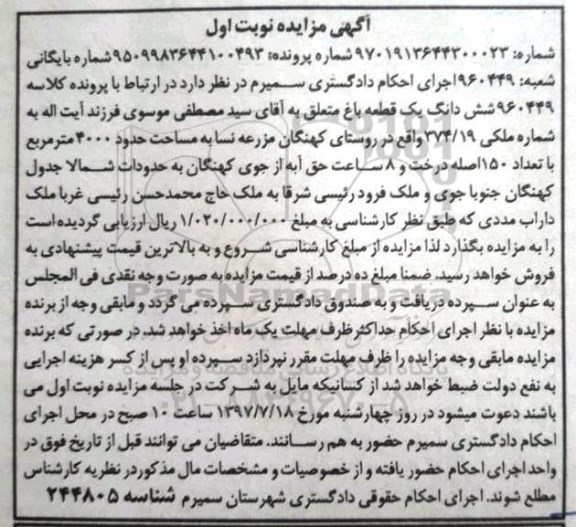 آگهی مزایده نوبت اول
شماره: ۹۷۰۱۹۱۳۶۴۴۳۰۰۰۲۳ شماره پرونده: ۹۵۰۹۹۸۳۶۴۴۱۰۰۴۹۳ شماره بایگانی
شعبه: ۹۶۰۴۴۹ اجرای احکام دادگستری سمیرم در نظر دارد در ارتباط با پرونده کلاسه
۹۶۰۴۴۹ شش دانگ یک قطعه باغ متعلق به آقای سید مصطفی موسوی فرزند آیت اله به
شماره ملکی ۳۷۴/۱۹ واقع در روستای کهنگان مزرعه نسا به مساحت حدود ۴۰۰۰ مترمربع
با تعداد ۱۵۰ اصله درخت و ۸ ساعت حق آبه از جوی کهنگان به حدودات شمالا جدول
کهنگان جنوبا جوی و ملک فرود رئیسی شرقا به ملک حاج محمدحسن رئیسی غربا ملک
داراب مددی که طبق نظر کارشناسی به مبلغ ۱/۰۲۰/۰۰۰/۰۰۰ ریال ارزیابی گردیده است
را به مزایده بگذارد لذا مزایده از مبلغ کارشناسی شروع و به بالاترین قیمت پیشنهادی به
فروش خواهد رسید. ضمنا مبلغ ده درصد از قیمت مزایده به صورت وجه نقدی فی المجلس
به عنوان سپرده دریافت و به صندوق دادگستری سپرده می گردد و مابقی وجه از برنده
مزایده با نظر اجرای احکام حداکثر ظرف مهلت یک ماه اخذ خواهد شد. در صورتی که برنده
مزایده مابقی وجه مزایده را ظرف مهلت مقرر نپردازد سپرده او پس از کسر هزینه اجرایی
به نفع دولت ضبط خواهد شد از کسانیکه مایل به شرکت در جلسه مزایده نوبت اول می
باشند دعوت میشود در روز چهارشنبه مورخ ۱۳۹۷/۷/۱۸ ساعت ۱۰ صبح در محل اجرای
احکام دادگستری سمیرم حضور به هم رسانند. متقاضیان می توانند قبل از تاریخ فوق در
واحد اجرای احکام حضور یافته و از خصوصیات و مشخصات مال مذکور در نظریه کارشناس
مطلع شوند. اجرای احکام حقوقی دادگستری شهرستان سمیرم شناسه ۲۴۴۸۰۵
ParsNamadData